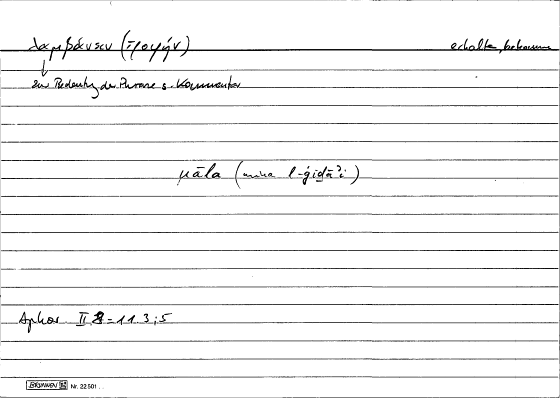 λαμβάνειν (τροφήν) erhalten, bekommen
zur Bedeutung der Phrase s. Kommentar
nāla (mina l-ġiḏāʾi)
Aphor. II 8 = 11.3; 5
BRUNNEN Nr. 22 501